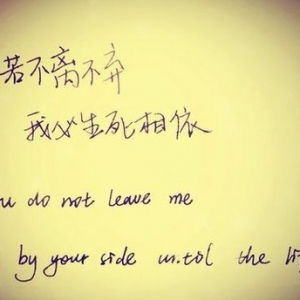 若不离不弃
我必生死相依
u do not leave me
by your side until the li